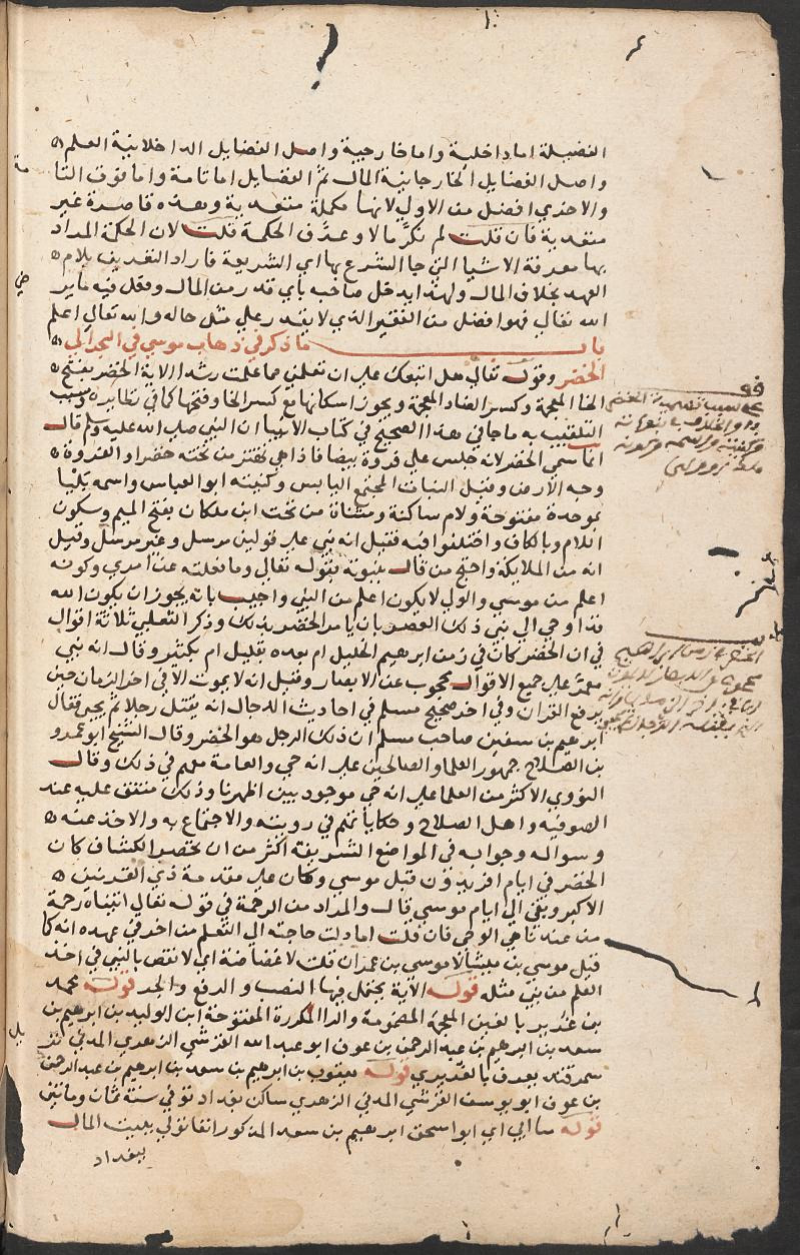 الفضيلة اما داخلية واما خارجية واصل الفضايل الداخلانية العلم
واصل الفضايل الخارجانية المال ثم الفضايل اما تامة واما فوق التا
والاخري افضل من الاولي لانها مكملة متعدية وهذه قاصرة غير
متعدية فان قلت لم نكر مالا وعرف الحكمة قلت لان الحكمة المراد
بها معرفة الاشيا التي جا الشرع بها اي الشريعة فاراد التعريف بلام
العهد بخلاف المال ولهذا يدخل صاحبه باي قدر من المال وفعل فيه ماير
الله تعالي فهو افضل من الفقير الذي لا يقدر علي مثل حاله والله تعالي اعلم
باب ما ذكر في ذهاب موسي في البحر الي
الخضر وقوله تعالي هل اتبعك علي ان تعلمني مما علمت رشدا الاية الخضر بفتح
الخا المعجمة وكسر الضاد المعجمة ويجوز اسكانها مع كسر الخا وفتحها كما في نظايره وسبب
التلقيب به ما جا في هذا الصحيح في كتاب الانبيا ان النبي صلي الله عليه وسلم قال
انما سمي الخضر لانه جلس علي فروة بيضا فاذا هي تهتز من تحته خضرا والفروة
وجه الارض وقيل النبات المجتمع اليابس وكنيته ابو العباس واسمه بليا
بموحدة مفتوحة ولام ساكنة ومثناة من تحت ابن ملكان بفتح الميم وسكون
اللام وبالكاف واختلفوا فيه فقيل انه نبي علي قولين مرسل وغير مرسل وقيل
انه من الملايكة واحتج من قال بنبوته بقوله تعالي وما فعلته عن امري وكونه
اعلم من موسي والولي لا يكون اعلم من النبي واجيب بانه يجوز ان يكون الله
قد اوحي الي نبي ذلك العصر بان يامر الخضر بذلك وذكر الثعلبي ثلاثة اقوال
في ان الخضر كان في زمن ابرهيم الخليل ام بعده بقليل ام بكثير وقال انه نبي
معمر علي جميع الاقوال محجوب عن الابصار وقيل انه لا يموت الا في اخر الزمان حين
يرفع القران وفي اخر صحيح مسلم في احاديث الدجال انه يقتل رجلا ثم يحيي فقال
ابرهيم بن سفين صاحب مسلم ان ذلك الرجل هو الخضر وقال الشيخ ابو عمرو
بن الصلاح جمهور العلما والصالحين علي انه حي والعامة معهم في ذلك وقال
النووي الاكثر من العلما علي انه حي موجود بين اظهرنا وذلك متفق عليه عند
الصوفيه واهل الصلاح وحكاياتهم في رويته والاجتماع به والاخذ عنه
وسواله وجوابه في المواضع الشريفة اكثر من ان تحصر الكشاف كان
الخضر في ايام افريدون قبل موسي وكان علي مقدمة ذي القرنين
الاكبر وبقي الي ايام موسي قال والمراد من الرحمة في قوله تعالي اتيناه رحمة
من عندنا هي الوحي فان قلت اما دلت حاجته الي التعلم من اخر في عهده انه كما
قيل موسي بن ميشا لا موسي بن عمران قلت لا غضاضة اي لا نقص بالنبي في اخذ
العلم من نبي مثله قوله الاية يحتمل فيها النصب والرفع والجر قوله محمد
بن غرير بالغين المعجمة المضمومة والرا المكررة المفتوحة ابن الوليد بن ابرهيم بن
سعد بن ابرهيم بن عبد الرحمن بن عوف ابو عبد الله القرشي الزهري المدني نزيل
سمرقند يعرف بالغريري قوله يعقوب بن ابرهيم بن سعد بن ابرهيم بن عبد الرحمن
بن عوف ابو يوسف القرشي المدني الزهري ساكن بغداد توفي في سنة ثمان ومايتين
قوله سا ابي اي ابو اسحق ابرهيم بن سعد المذكور انفا تولي بيت المال
ببغداد